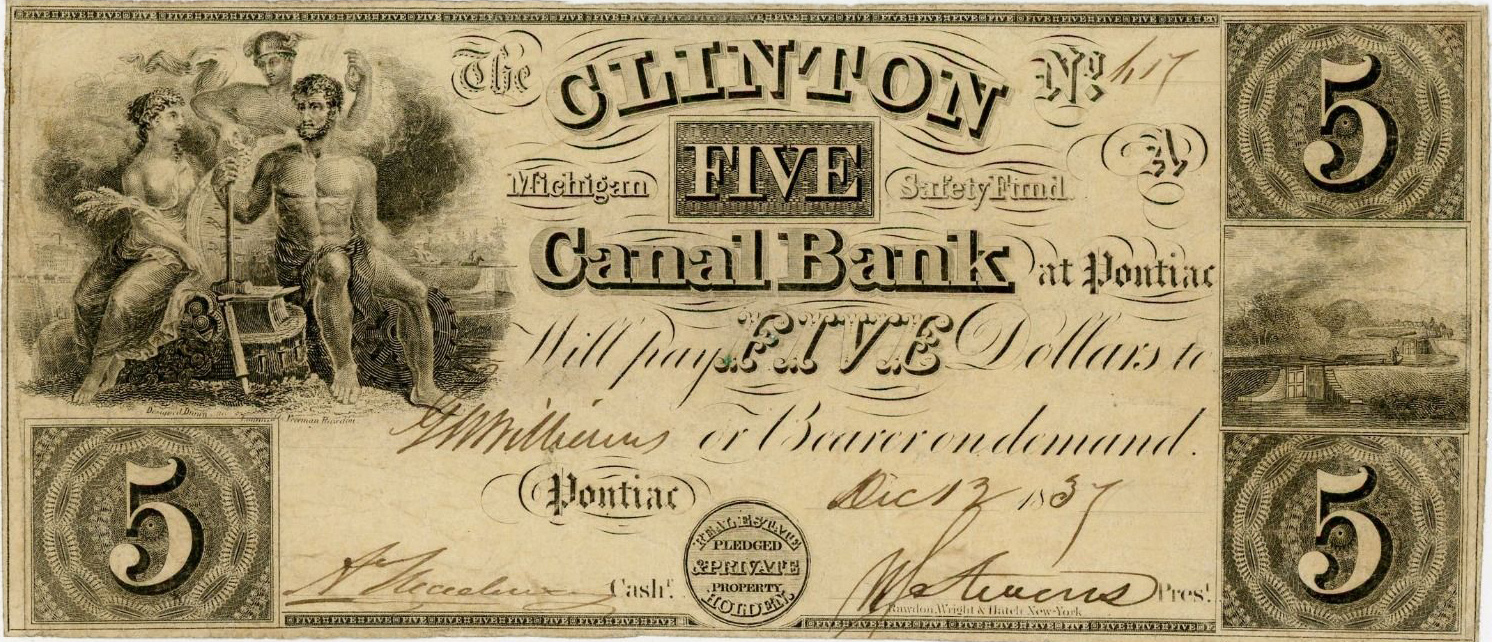 FIVE FIVE FIVE FIVE FIVE FIVE FIVE FIVE FIVE FIVE FIVE FIVE FIVE FIVE FIVE FIVE
The CLINTON No.
5
Michigan FIVE Safety Fund A
Canal Bank at Pontiac
Will pay FIVE Dollars to
Williams or Bearer on demand.
Pontiac Dec 12 1837
5
5
REAL ESTATE
PLEDGED
& PRIVATE
PROPERTY
HOLDEN
Cashr. Presr.
Rawdon, Wright & Hatch New-York
FIVE FIVE FIVE FIVE FIVE FIVE FIVE FIVE FIVE FIVE FIVE FIVE